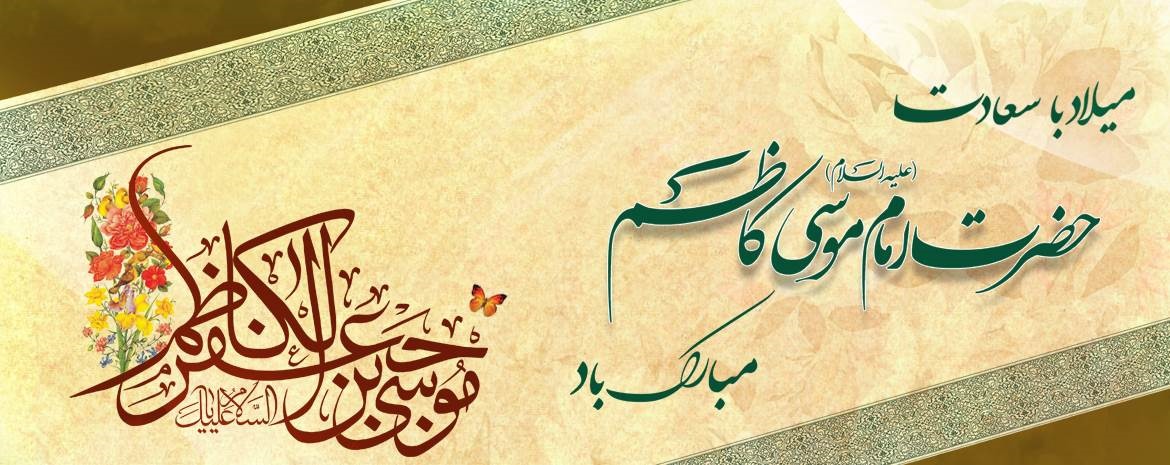 میلاد با سعادت
حضرت امام موسی کاظم (علیه السلام)
مبارک باد
موسی بن جعفر الکاظم
السلام علیک